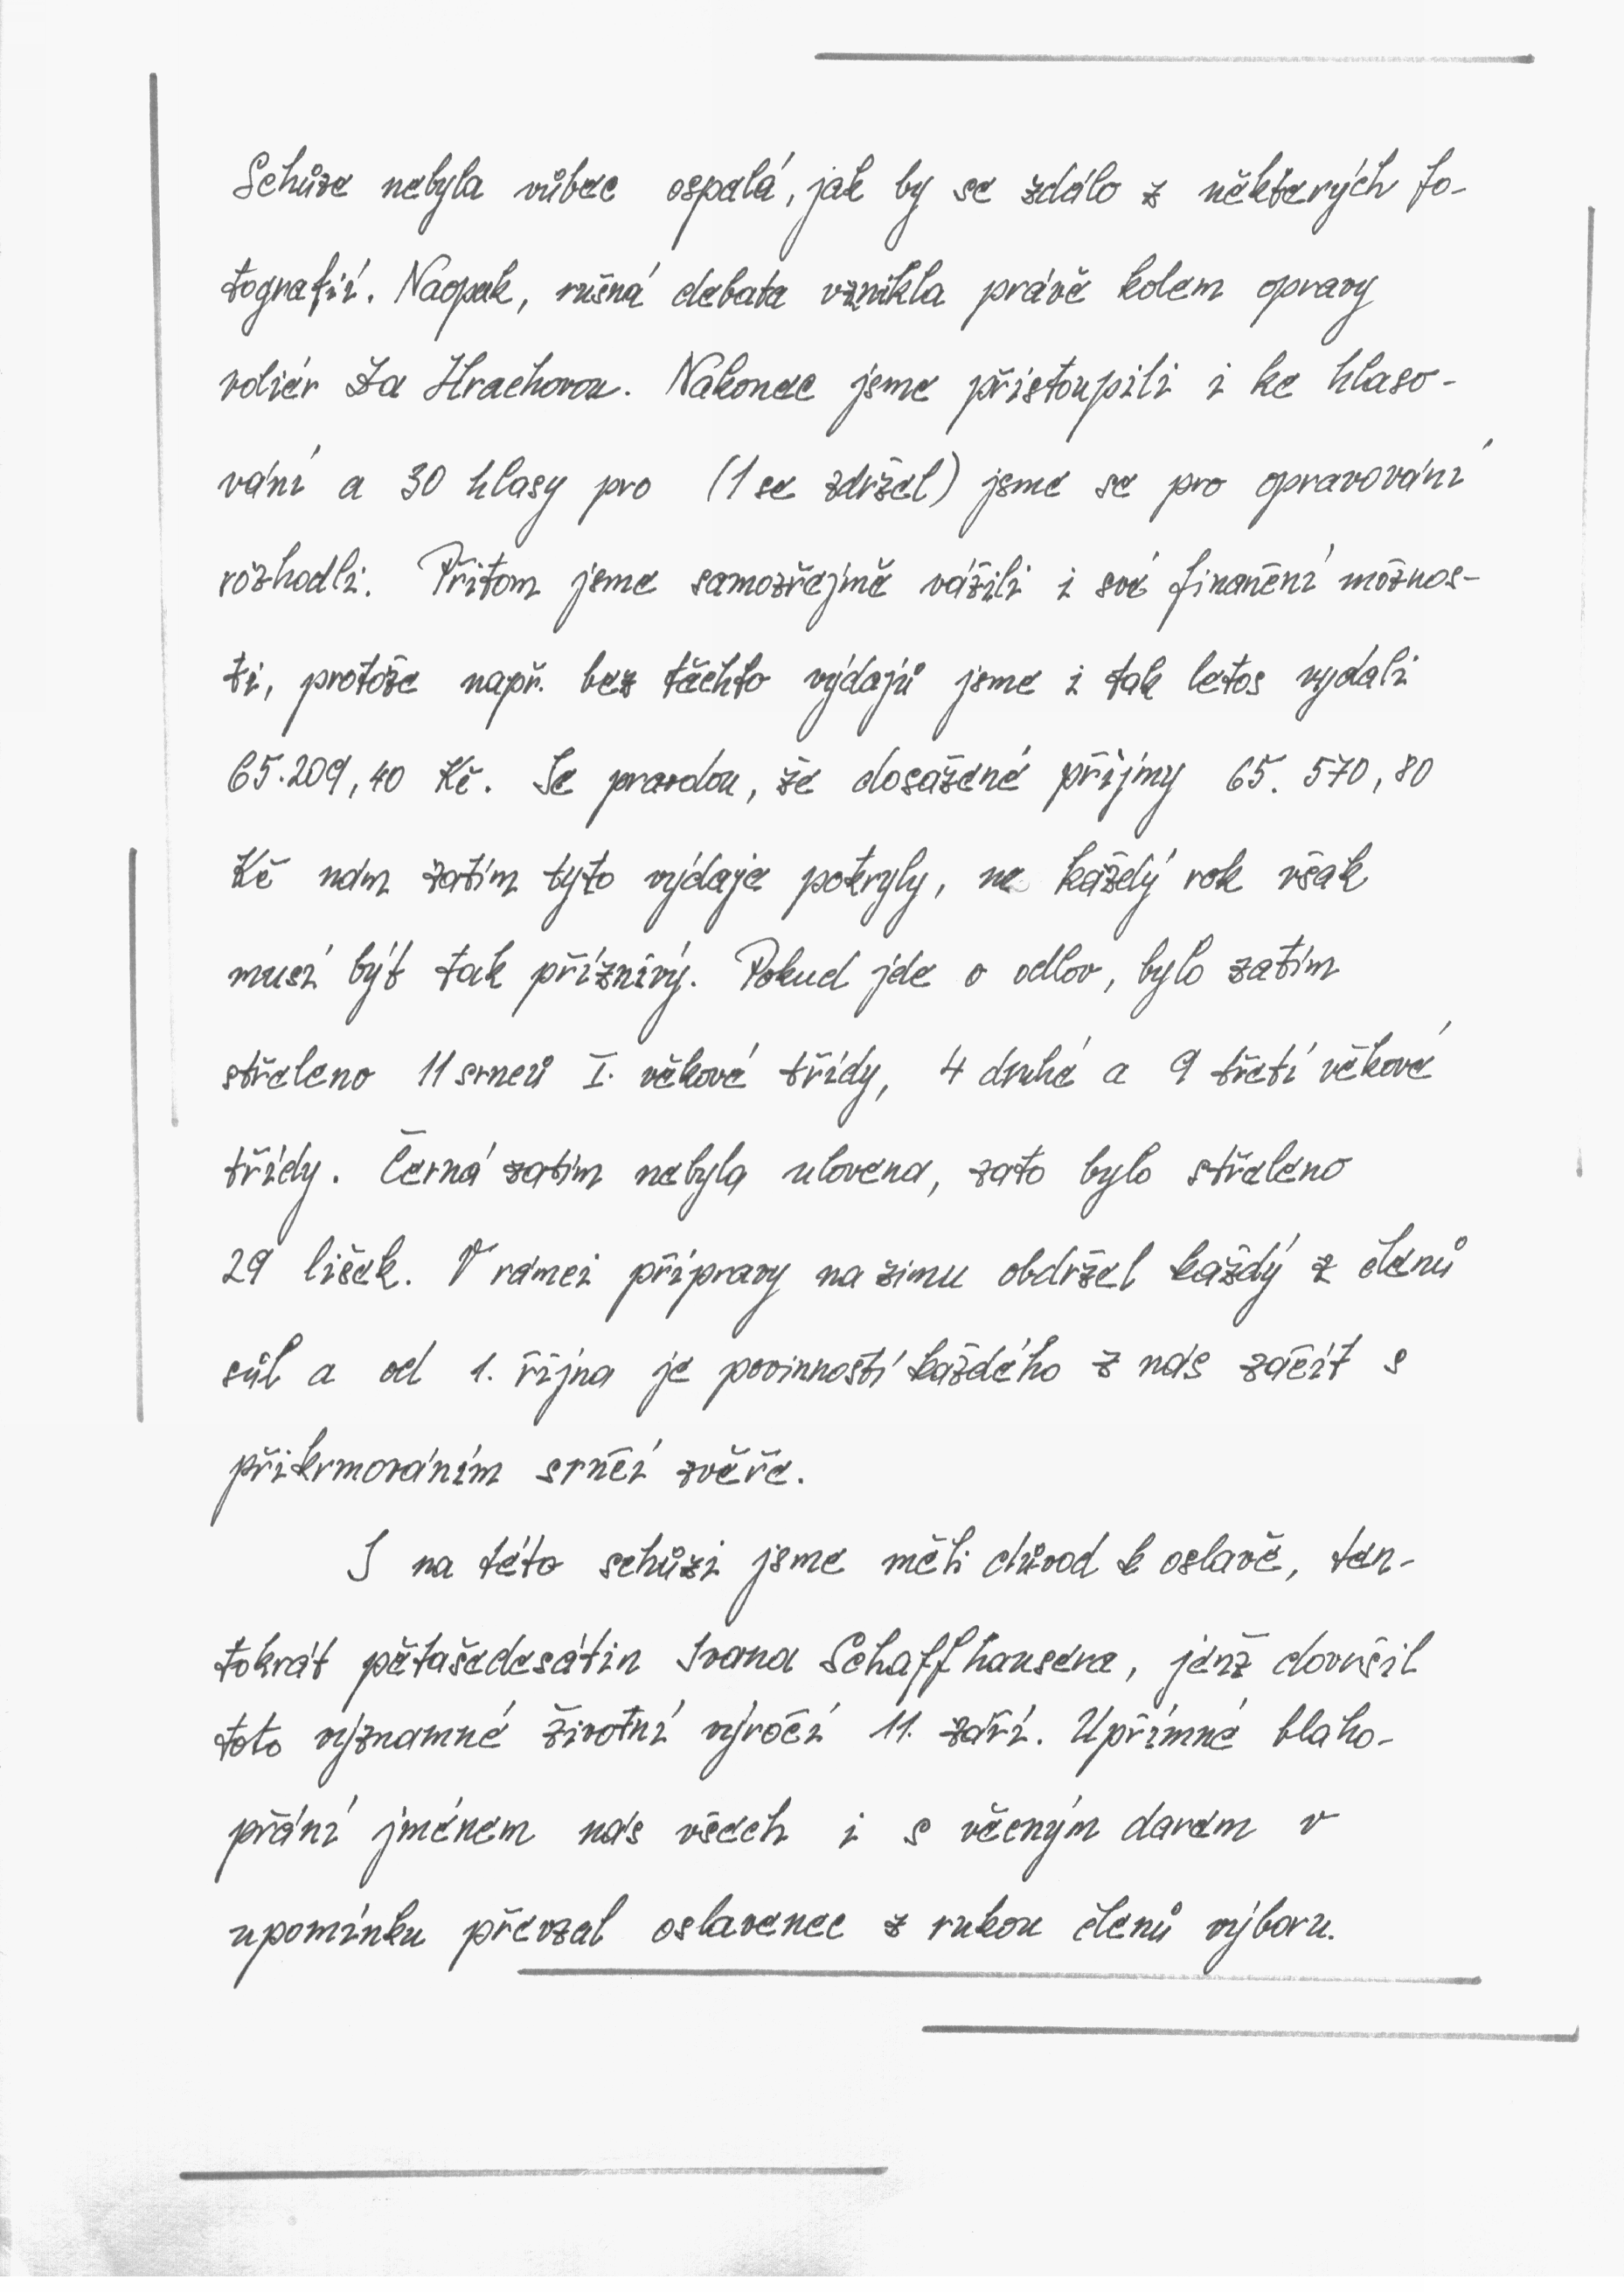 Schůze nebyla vůbec ospalá, jak by se zdálo z některých fo-
tografií. Naopak, rušná debata vznikla právě kolem opravy
voliér Za Hrachovou. Nakonec jsme přistoupili i ke hlaso-
vání a 30 hlasy pro (1 se zdržel) jsme se pro opravování
rozhodli. Přitom jsme samozřejmě vážili i své finanční možnos-
ti, protože např. bez těchto výdajů jsme i tak letos vydali
65.209,40 Kč. Je pravdou, že dosažené příjmy 65.570,80
Kč nám zatím tyto výdaje pokryly, ne každý rok však
musí být tak příznivý. Pokud jde o odlov, bylo zatím
střeleno 11 srnců I. věkové třídy, 4 druhé a 9 třetí věkové
třídy. Černá zatím nebyla ulovena, zato bylo střeleno
29 lišek. V rámci přípravy na zimu obdržel každý z členů
sůl a od 1. října je povinností každého z nás začít s
přikrmováním srnčí zvěře.
I na této schůzi jsme měli důvod k oslavě, ten-
tokrát pětašedesátin Ivana Schaffhausera, jenž dovršil
toto významné životní výročí 11. září. Upřímné blaho-
přání jménem nás všech i s věcným darem v
upomínku převzal oslavenec z rukou členů výboru.